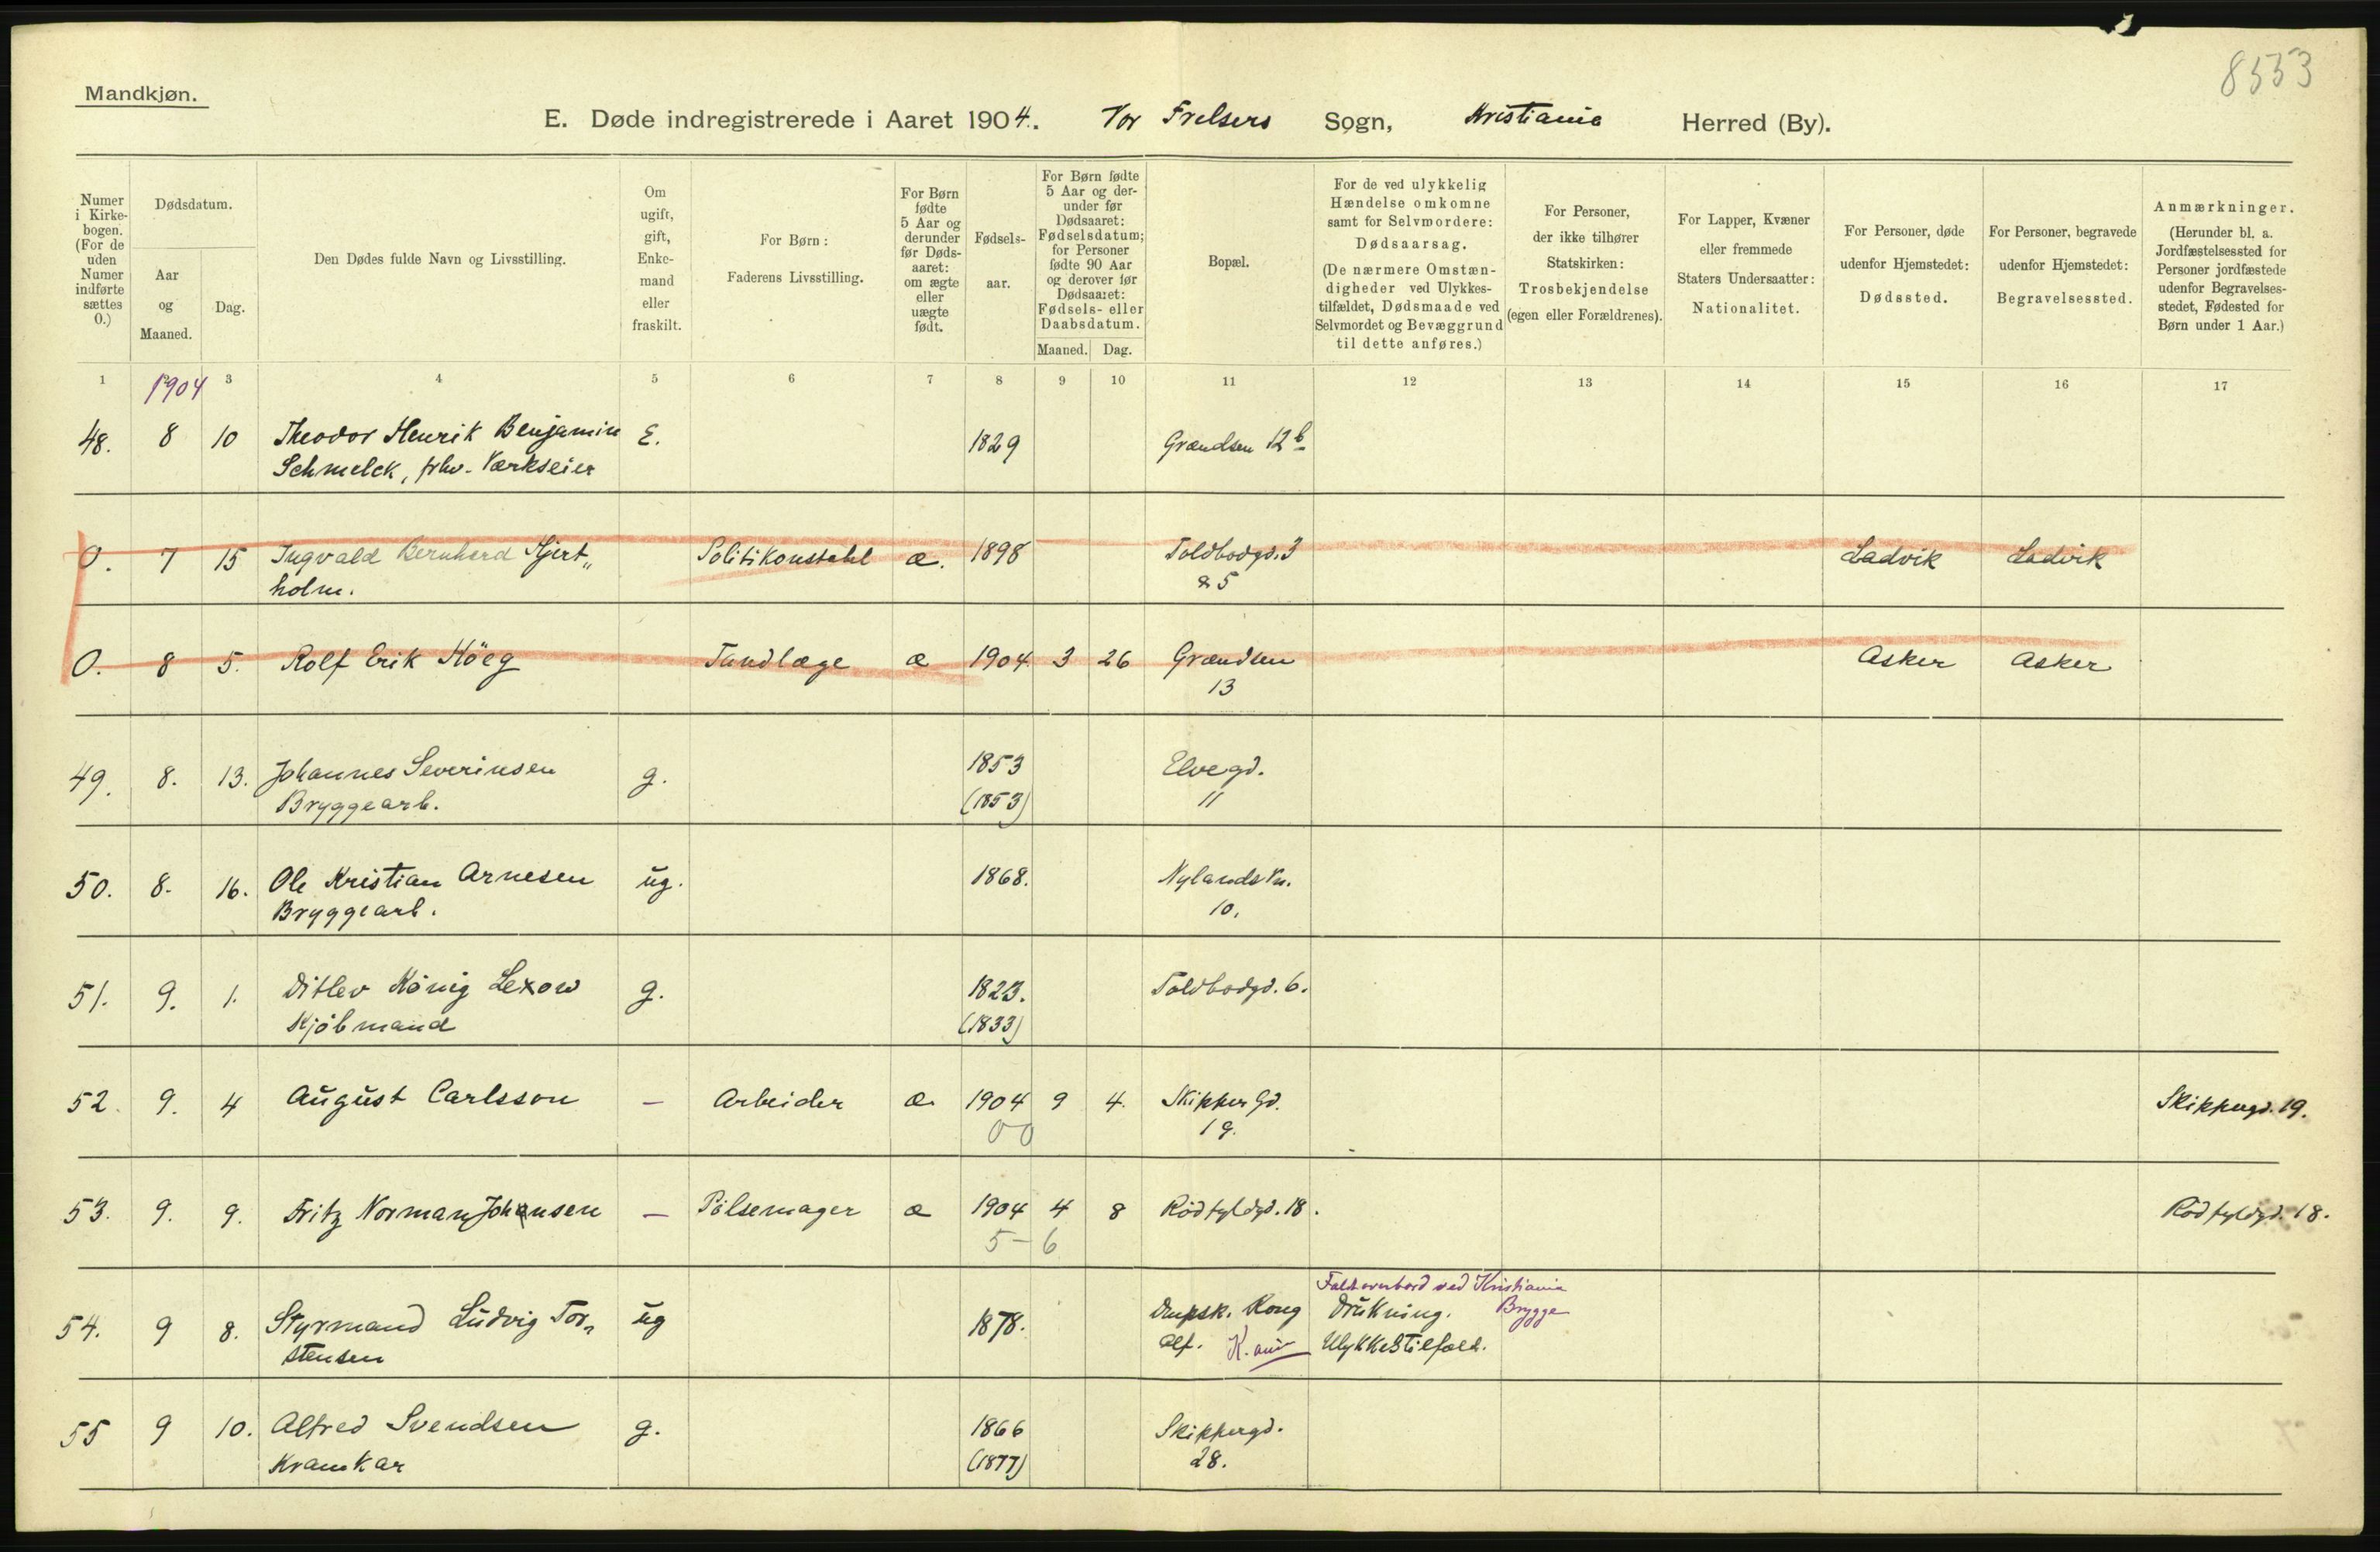 8553
Mandkjøn.
E. Døde indregistrerede i Aaret 1904. Vor Frelsers Sogn, Kristiania Herred (By).
Numer i Kirkebogen. (For de uden Numer indførte sættes 0.)
Dødsdatum.
Aar og Maaned.
Dag.
Den Dødes fulde Navn og Livsstilling.
Om ugift, gift, Enkemand eller fraskilt.
For Børn: Faderens Livsstilling.
For Børn fødte 5 Aar og derunder før Dødsaaret: om ægte eller uægte født.
Fødselsaar.
For Børn fødte 5 Aar og derunder før Dødsaaret: Fødselsdatum; for Personer fødte 90 Aar og derover før Dødsaaret: Fødsels- eller Daabsdatum.
Maaned. Dag.
Bopæl.
For de ved ulykkelig Hændelse omkomne samt for Selvmordere: Dødsaarsag. (De nærmere Omstændigheder ved Ulykkestilfældet, Dødsmaade ved Selvmordet og Bevæggrund til dette anføres.)
For Personer, der ikke tilhører Statskirken: Trosbekjendelse (egen eller Forældrenes).
For Lapper, Kvæner eller fremmede Staters Undersaatter: Nationalitet.
For Personer, døde udenfor Hjemstedet: Dødssted.
For Personer, begravede udenfor Hjemstedet: Begravelsessted.
Anmærkninger. (Herunder bl. a. Jordfæstelsessted for Personer jordfæstede udenfor Begravelsesstedet, Fødested for Børn under 1 Aar.)
1 3 4 5 6 7 8 9 10 11 12 13 14 15 16 17
1904
48. 8 10 Theodor Henrik Benjamin E. 1829 Grændsen 12 b
Schmelck, fhv. Værkseier
0. 7 15 Ingvald Bernhard Hjert„ Politikonstabel æ. 1898 Toldbodgd. 3 Ladvik Ladvik
holm. & 5
0. 8 5. Rolf Erik Höeg Tandlæge æ 1904 3 26 Grændsen Asker Asker
13
49. 8. 13. Johannes Severinsen g. 1853 Elvegd.
Bryggearb. (1853) 11
50. 8. 16. Ole Kristian Arnesen ug. 1868. Nylandsv.
Bryggearb. 10.
51. 9. 1. Ditlev König Lexow g. 1823. Toldbodgd. 6.
Kjöbmand (1833)
52. 9. 4 August Carlsson — Arbeider æ 1904 9 4. Skippergd. Skippergd. 19.
00 19.
53. 9. 9. Fritz Norman Johansen — Pölsemager æ 1904 4 8 Rödfyldgd. 18. Rödfyldgd. 18.
5 - 6
Faldt overbord ved Kristiania
54. 9 8. Styrmand Ludvig Tor„ ug 1878. Dmpsk. Kong Drukning. Brygge
stensen Alf. Ulykkestilfæld.
55 9 10. Alfred Svendsen g. 1866 Skippergd.
Kramkar (1877) 28.